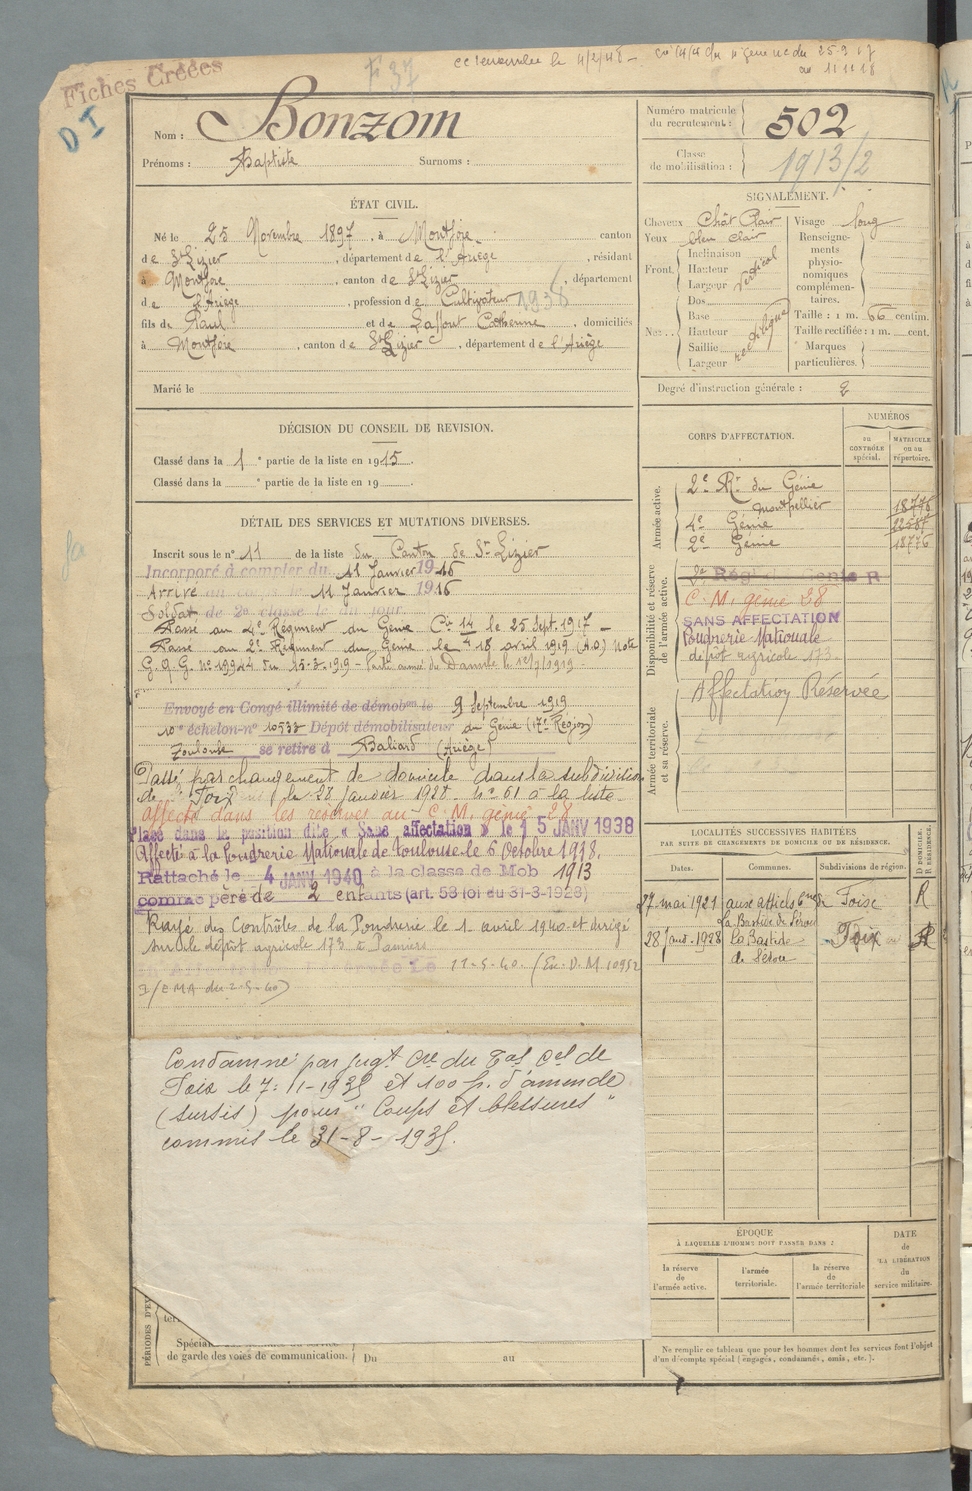 Fiches Créées
F 37
D I
Nom : Bonzom
Prénoms : Baptiste Surnoms :
Numéro matricule du recrutement : 502
Classe de mobilisation : 1913/2
ÉTAT CIVIL.
Né le 25 Novembre 1897, à Montjoie canton
de St Lizier, département de l'Ariège, résidant
à Montjoie, canton de St Lizier, département
de l'Ariège, profession de Cultivateur
fils de Paul et de Laffont Catherine, domiciliés
à Montjoie, canton de St Lizier, département de l'Ariège
Marié le
SIGNALEMENT.
Cheveux Chât Clair
Yeux bleu clair
Front. Inclinaison Hauteur Largeur vertical
Nez. Dos Base Hauteur Saillie Largeur rectiligne
Visage long
Renseignements physionomiques complémentaires.
Taille : 1 m. 66 centim.
Taille rectifiée : 1 m. cent.
Marques particulières.
Degré d'instruction générale : 2
DÉCISION DU CONSEIL DE REVISION.
Classé dans la 1e partie de la liste en 1915.
Classé dans la e partie de la liste en 19
DÉTAIL DES SERVICES ET MUTATIONS DIVERSES.
Inscrit sous le n° 11 de la liste du Canton de St Lizier
Incorporé à compter du 11 Janvier 1916
Arrivé au corps le 11 Janvier 1916
Soldat de 2e classe le dit jour
Passe au 4e Régiment du Génie Cie 14 le 25 Sept. 1917 -
Passe au 2e Régiment du Génie le 18 avril 1919 (A.O.) Note
G.Q.G. N° 19944 du 15-3-1919 -
Envoyé en Congé illimité de démobon le 9 Septembre 1919
10e échelon n° 10533 Dépôt démobilisateur du Génie (17e Région)
Toulouse se retire à Baliard (Ariège)
Passé par changement de domicile dans la subdivision
de Foix le 28 Janvier 1928 n° 61 à la liste
affecté dans les réserves au C. M. génie 28
Placé dans la position dite « Sans affectation » le 15 JANV 1938
Affecté à la Poudrerie Nationale de Toulouse le 6 Octobre 1938.
Rattaché le 4 JANV 1940 à la classe de Mob 1913
comme père de 2 enfants (art. 58 loi du 31-3-1928)
Rayé des Contrôles de la Poudrerie le 1er avril 1940 et dirigé
sur le dépôt agricole 173 à Pamiers
11-5-40. (Ex. D. M. 10952
I/EMA du 2-5-40)
Condamné par jugt Cre du Tal Cel de
Foix le 7-11-1935 et 100 f. d'amende
(sursis) pour "Coups et blessures"
commis le 31-8-1935.
CORPS D'AFFECTATION.
NUMÉROS
DU CONTRÔLE spécial.
MATRICULE ou au répertoire.
Armée active.
2e Rt du Génie Montpellier 18776
4e Génie 22587
2e Génie 18776
Disponibilité et réserve de l'armée active.
C. M. génie 28
SANS AFFECTATION
Poudrerie Nationale
dépôt agricole 173
Armée territoriale et sa réserve.
Affectation Réservée
LOCALITÉS SUCCESSIVES HABITÉES
PAR SUITE DE CHANGEMENTS DE DOMICILE OU DE RÉSIDENCE.
Dates. Communes. Subdivisions de région. D DOMICILE. R RÉSIDENCE.
27 mai 1921 La Bastide de Sérou Foix R
28 Janv. 1928 La Bastide de Sérou Foix
ÉPOQUE
À LAQUELLE L'HOMME DOIT PASSER DANS :
la réserve de l'armée active.
l'armée territoriale.
la réserve de l'armée territoriale
DATE de LA LIBÉRATION du service militaire.
de garde des voies de communication. Du au
Ne remplir ce tableau que pour les hommes dont les services font l'objet
d'un décompte spécial (engagés, condamnés, omis, etc.).